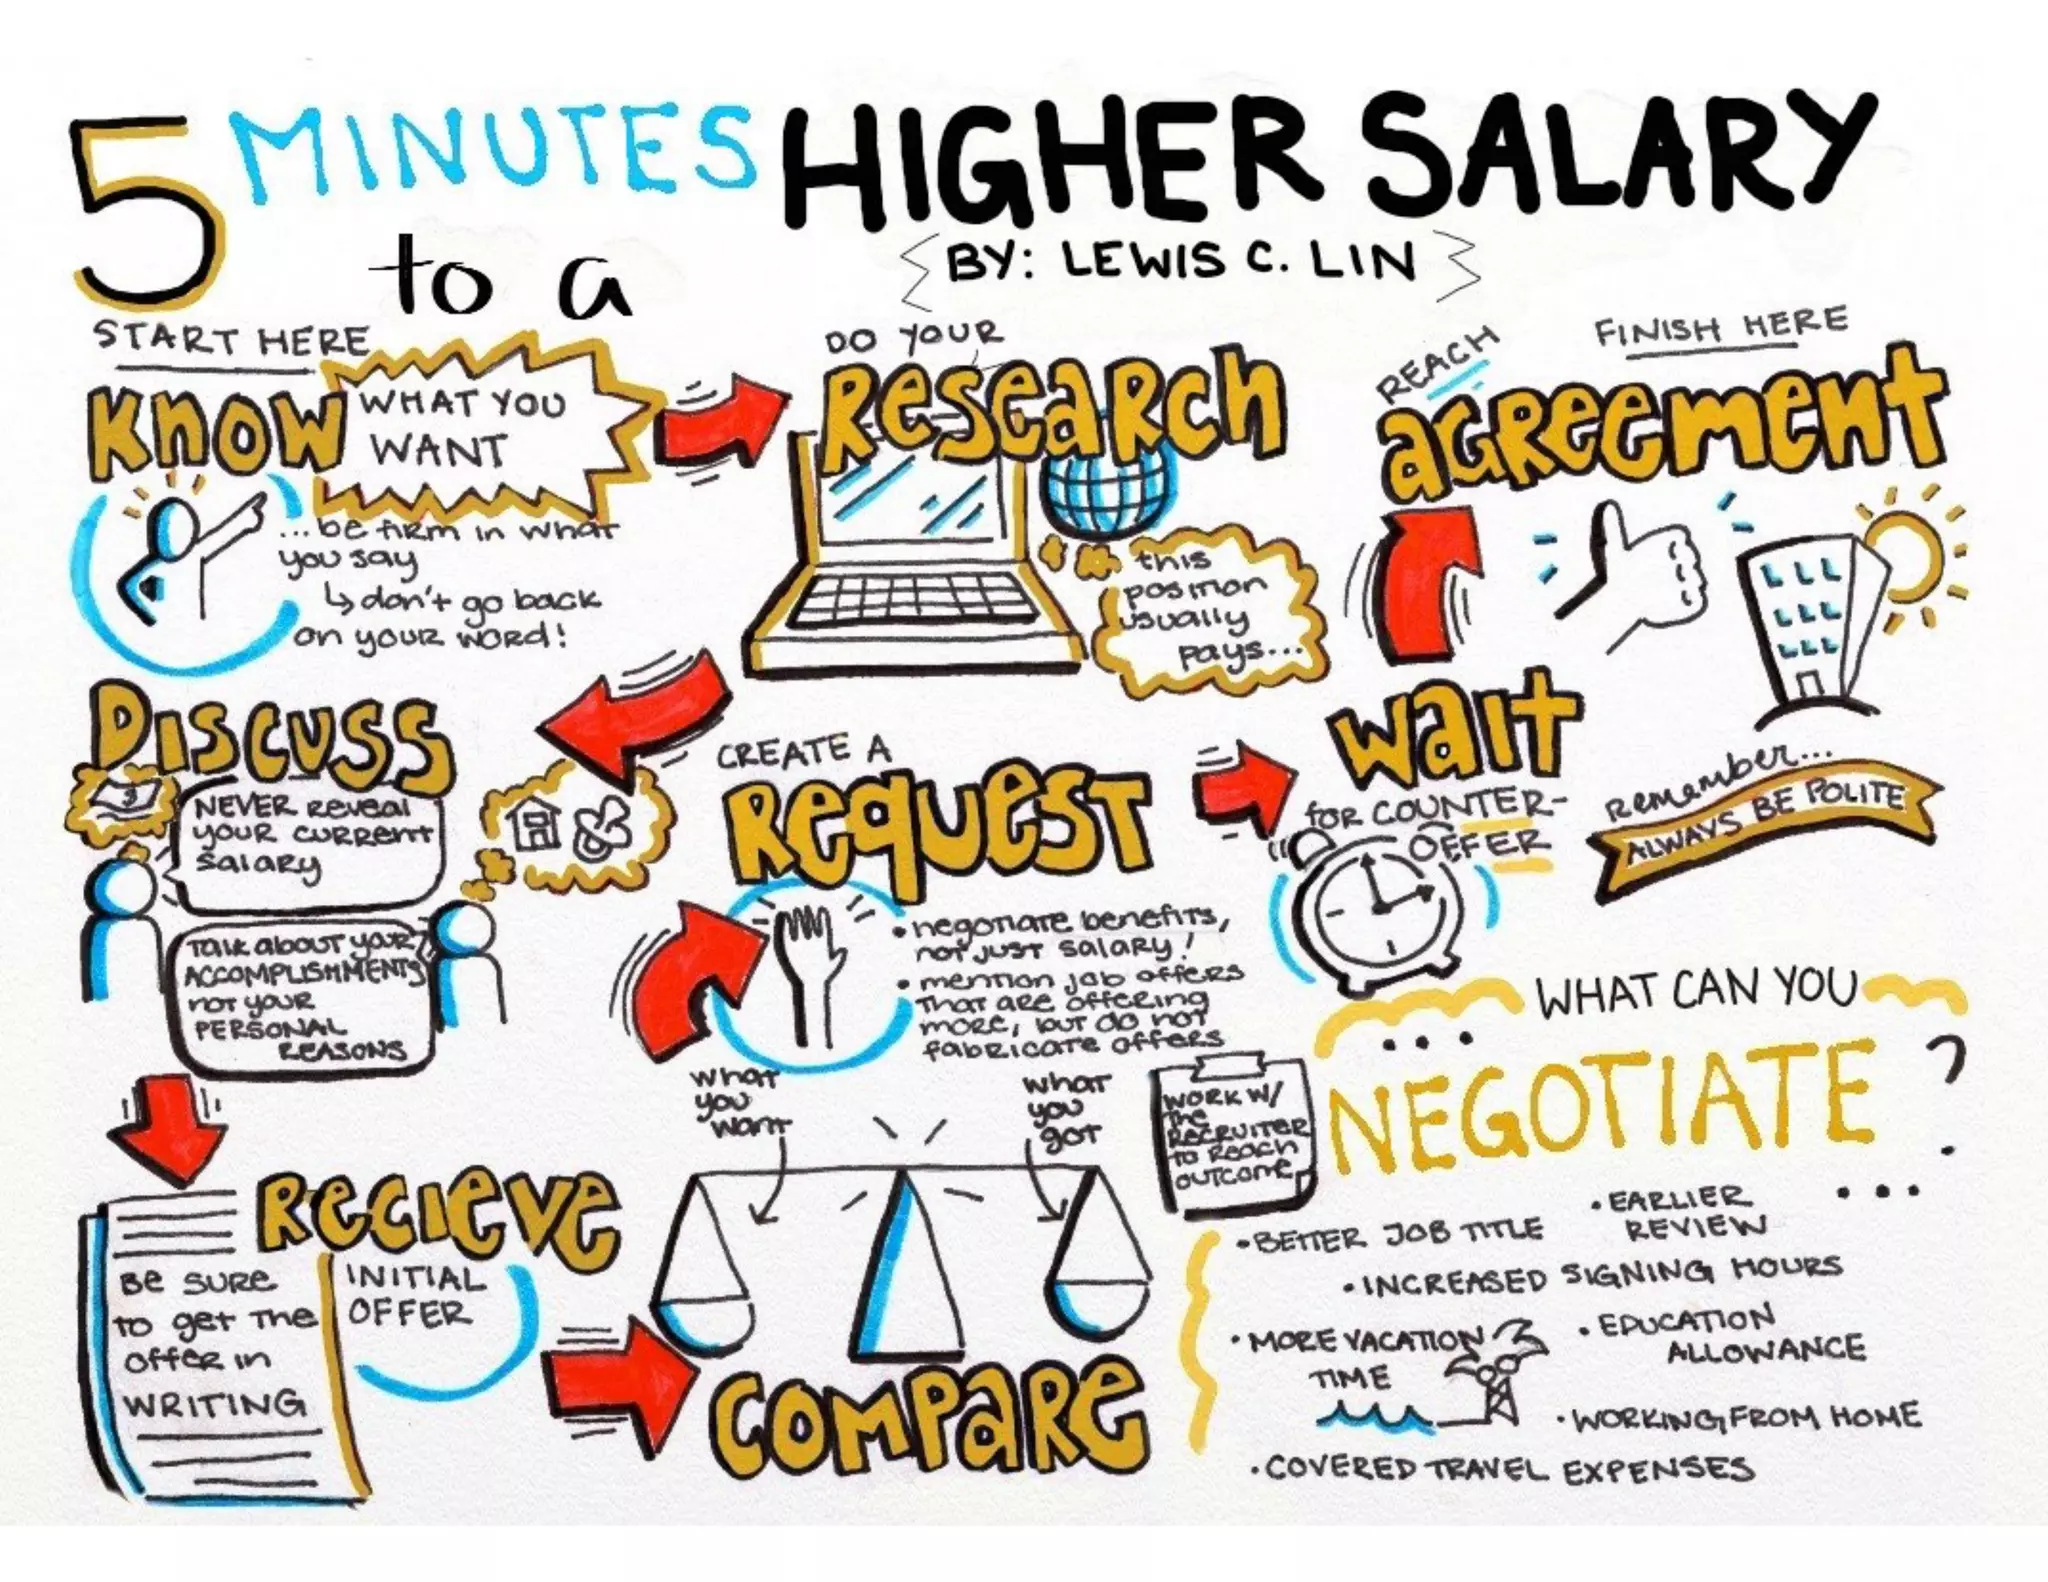 5 MINUTES
to a
HIGHER SALARY
BY: LEWIS C. LIN
START HERE
KNOW
WHAT YOU
WANT
...be firm in what
you say
↳ don't go back
on your word!
DO YOUR
RESEARCH
this
position
usually
pays...
DISCUSS
NEVER Reveal
your current
salary
Talk about your
ACCOMPLISHMENTS
not your
PERSONAL
REASONS
RECIEVE
INITIAL
OFFER
Be SURE
to get the
offer in
WRITING
COMPARE
what
you
want
what
you
got
CREATE A
REQUEST
• negotiate benefits,
not just salary!
• mention job offers
that are offering
more, but do not
fabricate offers
WORK W/
the
RECRUITER
to Reach
outcome
WAIT
for COUNTER-
OFFER
REACH
AGREEMENT
FINISH HERE
Remember...
ALWAYS BE POLITE
WHAT CAN YOU
...
NEGOTIATE?
...
• BETTER JOB TITLE
• EARLIER
REVIEW
• INCREASED SIGNING HOURS
• MORE VACATION
TIME
• EDUCATION
ALLOWANCE
• WORKING FROM HOME
• COVERED TRAVEL EXPENSES